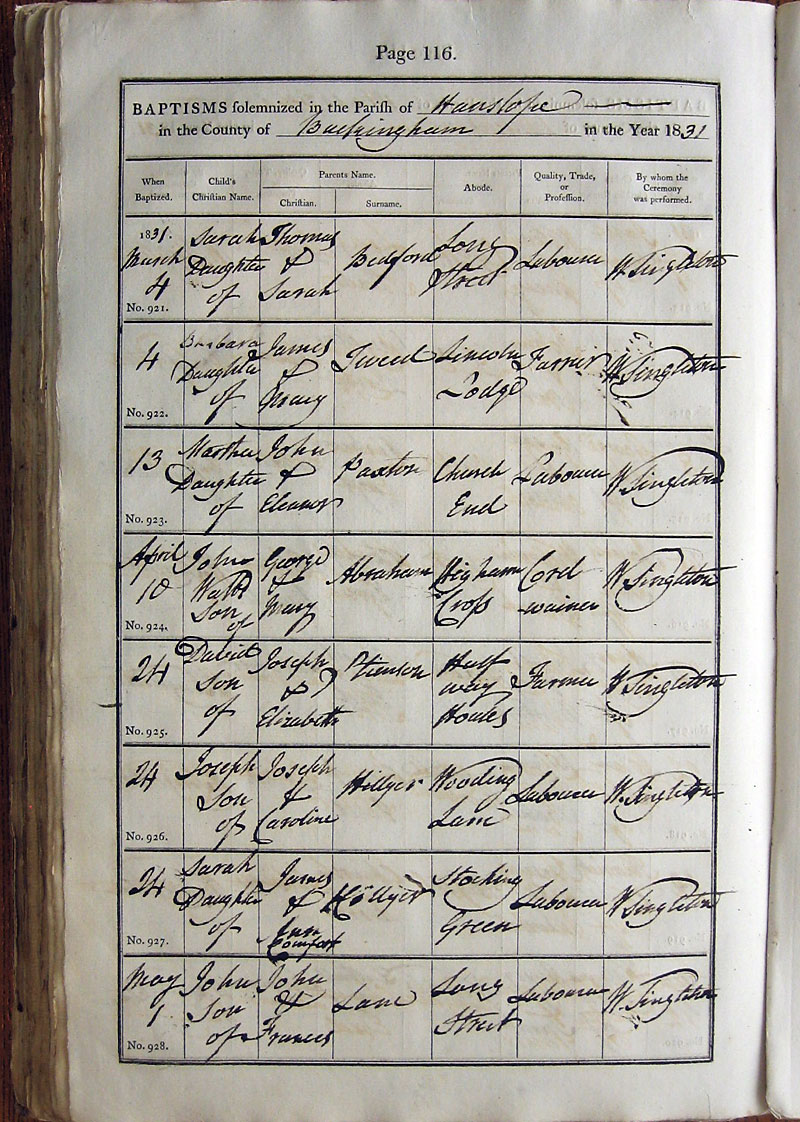 Page 116.
BAPTISMS solemnized in the Parish of Hanslope
in the County of Buckingham in the Year 1831
When Baptized. Child's Christian Name. Parents Name. Christian. Surname. Abode. Quality, Trade, or Profession. By whom the Ceremony was performed.
1831. March 4 No. 921. Sarah Daughter of Thomas & Sarah Bedford Long Street Labourer W Singleton
4 No. 922. Barbara Daughter of James & Mary Tweed Lincoln Lodge Farmer W. Singleton
13 No. 923. Martha Daughter of John & Eleanor Paxton Church End Labourer W. Singleton
April 10 No. 924. John Son of George & Mary Abraham Higham Cross Cord wainer W. Singleton
24 No. 925. David Son of Joseph & Elizabeth Half way Houses Farmer W. Singleton
24 No. 926. Joseph Son of Joseph & Caroline Hillyer Wooding Lane Labourer W. Singleton
24 No. 927. Sarah Daughter of James & Ann Comfort Hillyer Stocking Green Labourer W Singleton
May 1 No. 928. John Son of John & Frances Lane Long Street Labourer W. Singleton